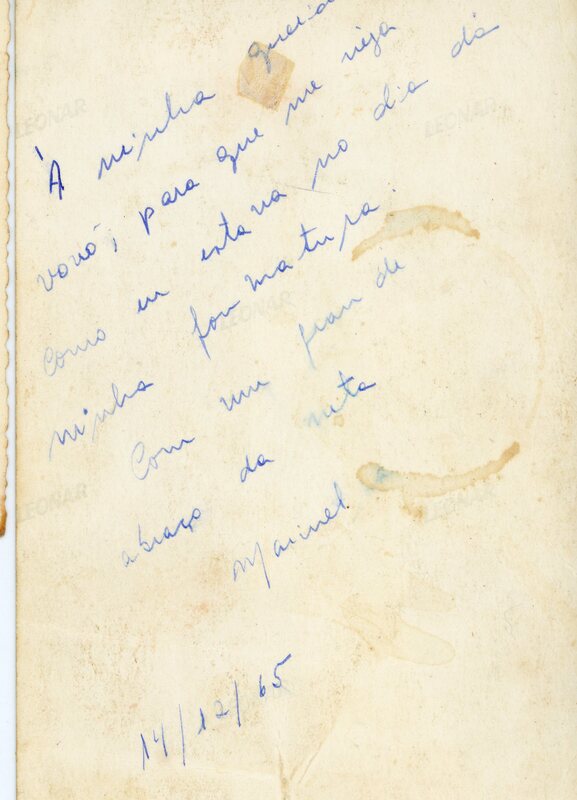 À minha querida
vovó, para que me veja
como eu estava no dia da
minha formatura.
Com um grande
abraço da neta
14/12/65
LEONAR
LEONAR
LEONAR
LEONAR
LEONAR